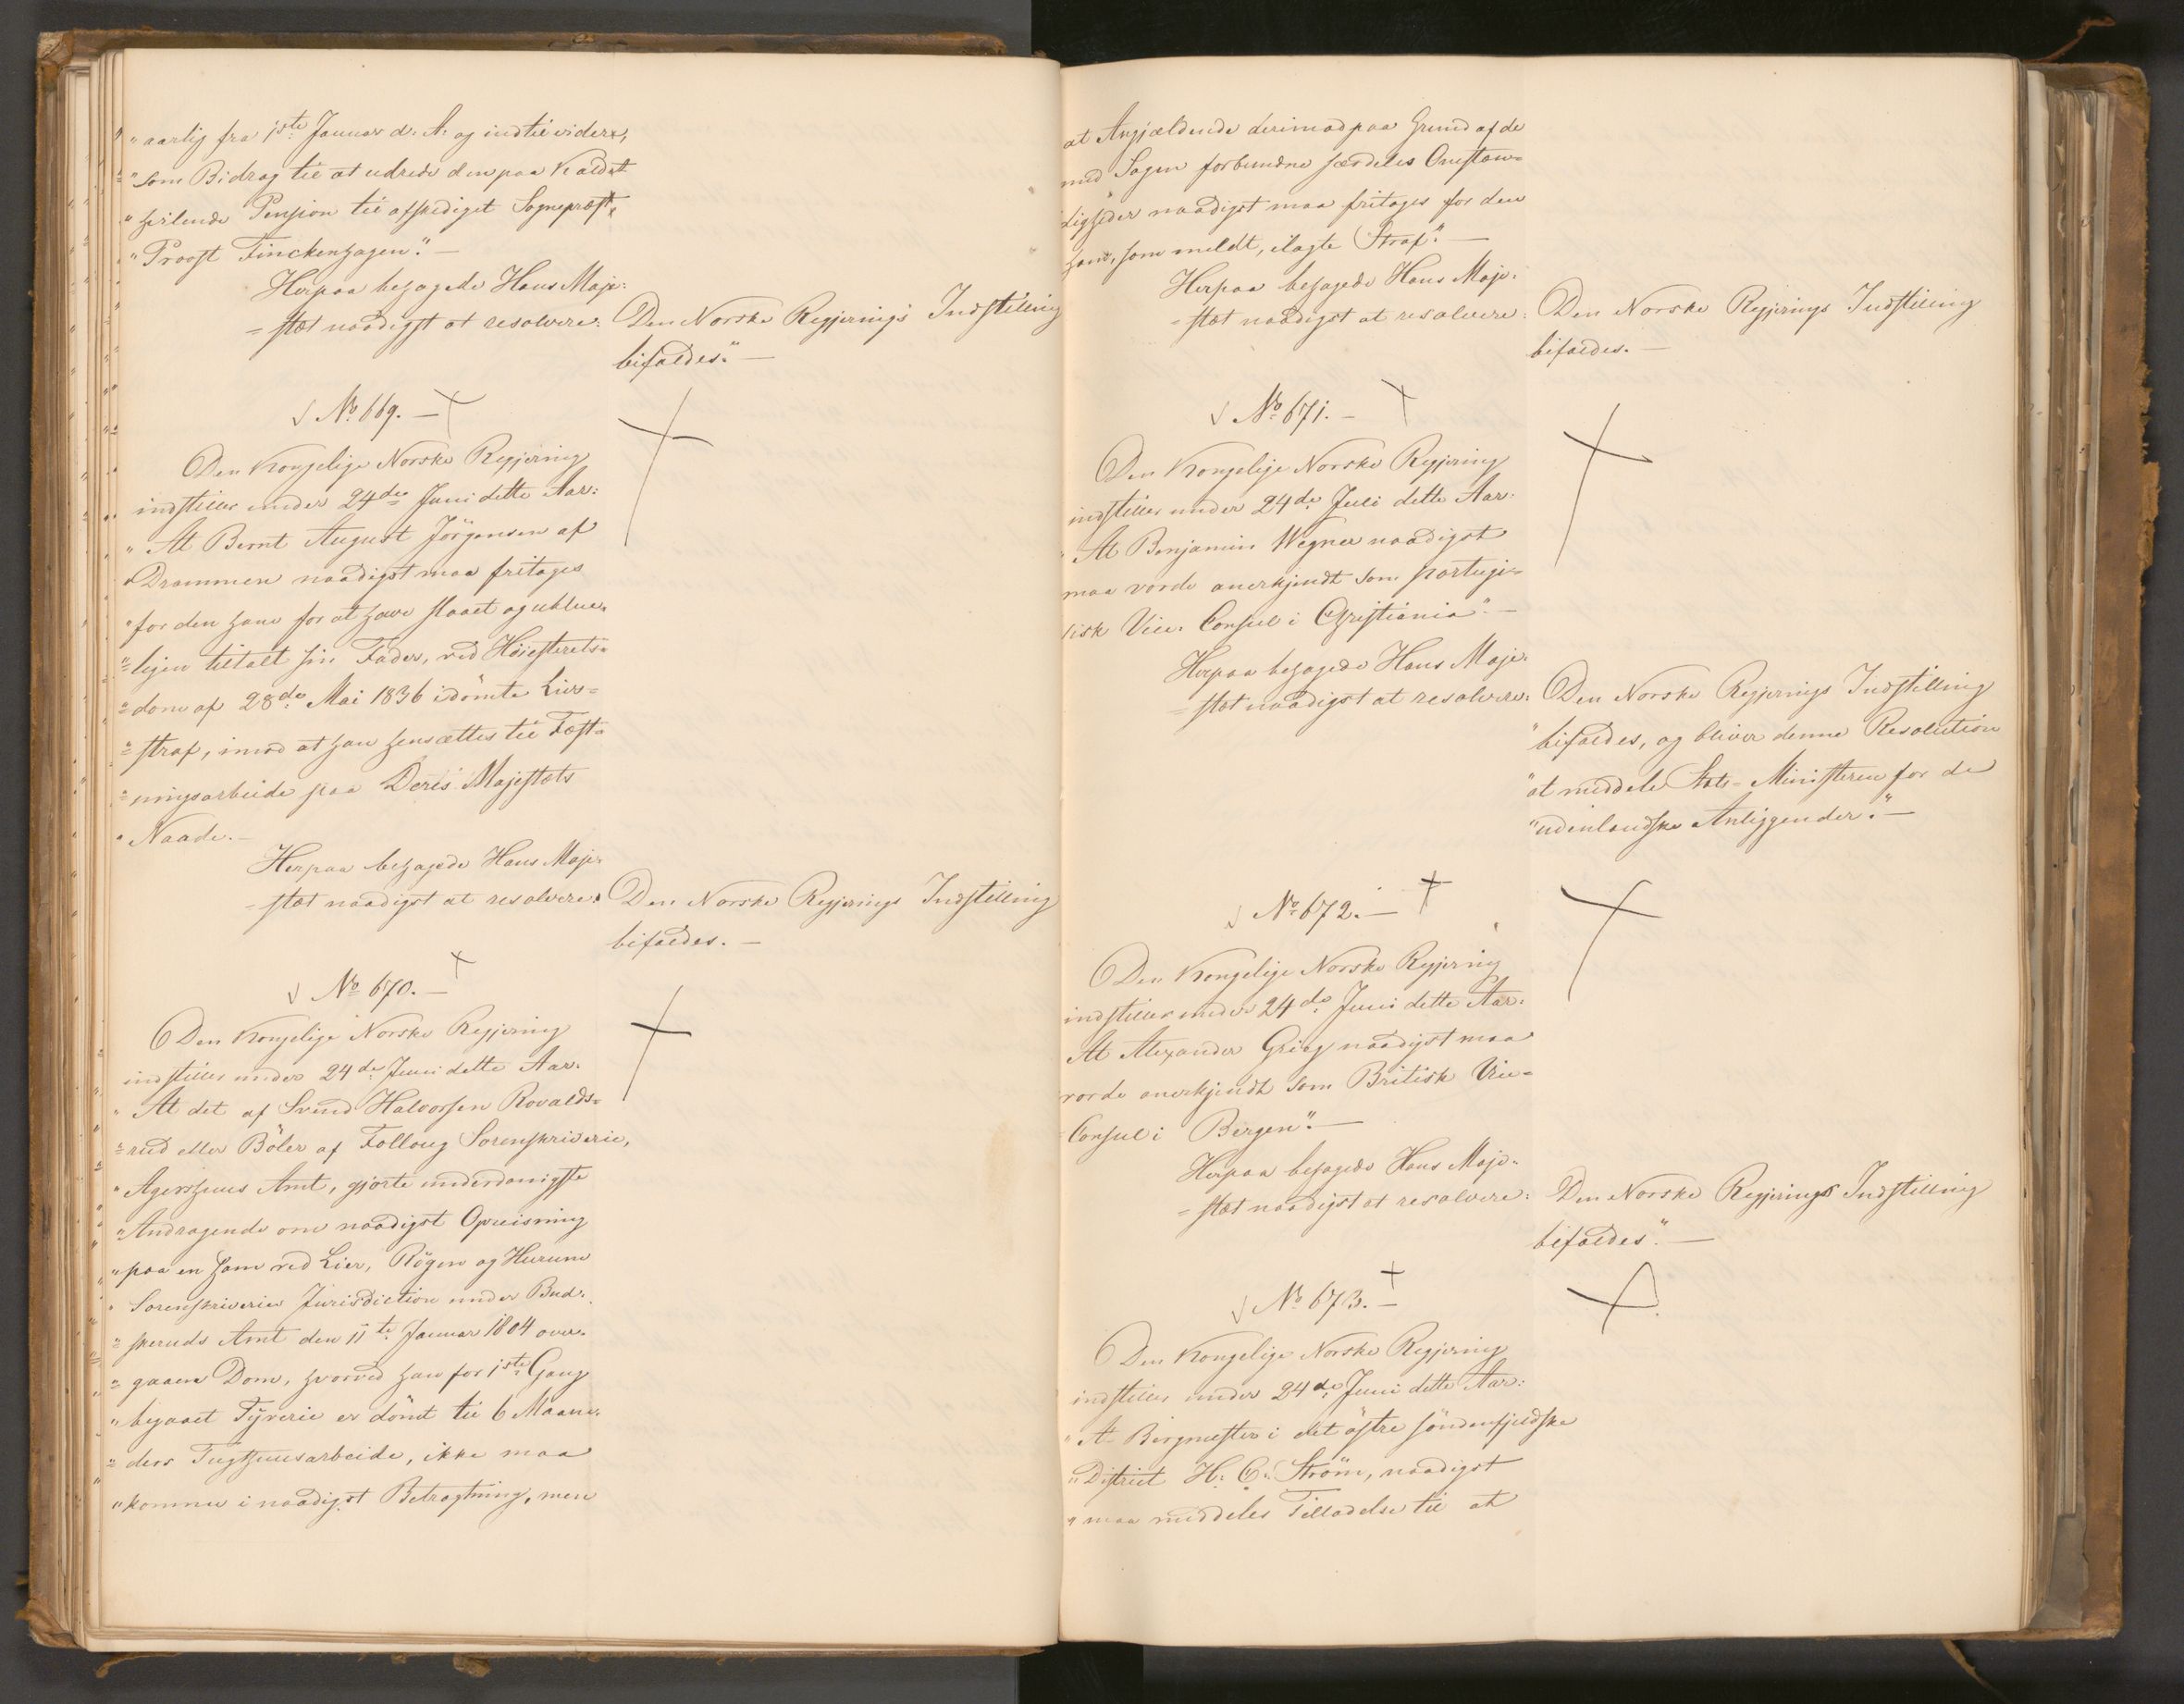 "aarlig fra 1ste Januar d. A. og indtil videre,
"som Bidrag til at udrede den paa Kaldet
"hvilende Pension til afskediget Sognepræst,
"Provst Finckenhagen". —
Herpaa behagede Hans Maje-
=stæt naadigst at resolvere: Den Norske Regjerings Indstilling
bifaldes." —
No 669. —
Den Kongelige Norske Regjering
indstiller under 24de Juni dette Aar:
"At Bernt August Jörgensen af
"Drammen naadigst maa fritages
"for den ham for at have slaaet og utilbør-
"=ligen tiltalt sin Fader, ved Höiesterets=
"=dom af 28de Mai 1836 idömte Livs=
"=straf, imod at han hensættes til Fæst=
"=ningsarbeide paa Deres Majestæts
"Naade. —
Herpaa behagede Hans Maje-
=stæt naadigst at resolvere: Den Norske Regjerings Indstilling
bifaldes. —
No 670. —
Den Kongelige Norske Regjering
indstiller under 24de Juni dette Aar.
"At det af Svend Halvorsen Rovalds=
"=rud eller Böler af Follougs Sorenskriverie,
"Agershuus Amt, gjorte underdanigste
"Andragende om naadigst Opreisning
"paa en ham ved Lier, Rögen og Hurum
"Sorenskriveries Jurisdiction under Bud-
"=skeruds Amt den 11te Januar 1804 over-
"=gaaen Dom, hvorved han for 1ste Gang
"begaaet Tyverie er dömt til 6 Maane-
"=ders Tugthuusarbeide, ikke maa
"komme i naadigst Betragtning, men
at Angjældende derimod paa Grund af de
med Sagen forbundne særdeles Omstæn=
digheder naadigst maa fritages for den
ham, som meldt, ilagte Straf." —
Herpaa behagede Hans Maje-
=stæt naadigst at resolvere: Den Norske Regjerings Indstilling
bifaldes. —
No 671. —
Den Kongelige Norske Regjering
indstiller under 24de Juli dette Aar.
"At Benjamin Wegner naadigst
maa vorde anerkjendt som portugi=
sisk Vice-Consul i Christiania". —
Herpaa behagede Hans Maje-
=stæt naadigst at resolvere: Den Norske Regjerings Indstilling
"bifaldes, og bliver denne Resolution
"at meddele Stats-Ministeren for de
"udenlandske Anliggender." —
No 672. —
Den Kongelige Norske Regjering
indstiller under 24de Juni dette Aar:
At Alexander Grieg naadigst maa
vorde anerkjendt som Britisk Vice=
Consul i Bergen". —
Herpaa behagede Hans Maje-
=stæt naadigst at resolvere: Den Norske Regjerings Indstilling
bifaldes". —
No 673. —
Den Kongelige Norske Regjering
indstiller under 24de Juni dette Aar:
"At Bergmester i det östre söndenfjeldske
"District H. C. Ström, naadigst
"maa meddeles Tilladelse til at